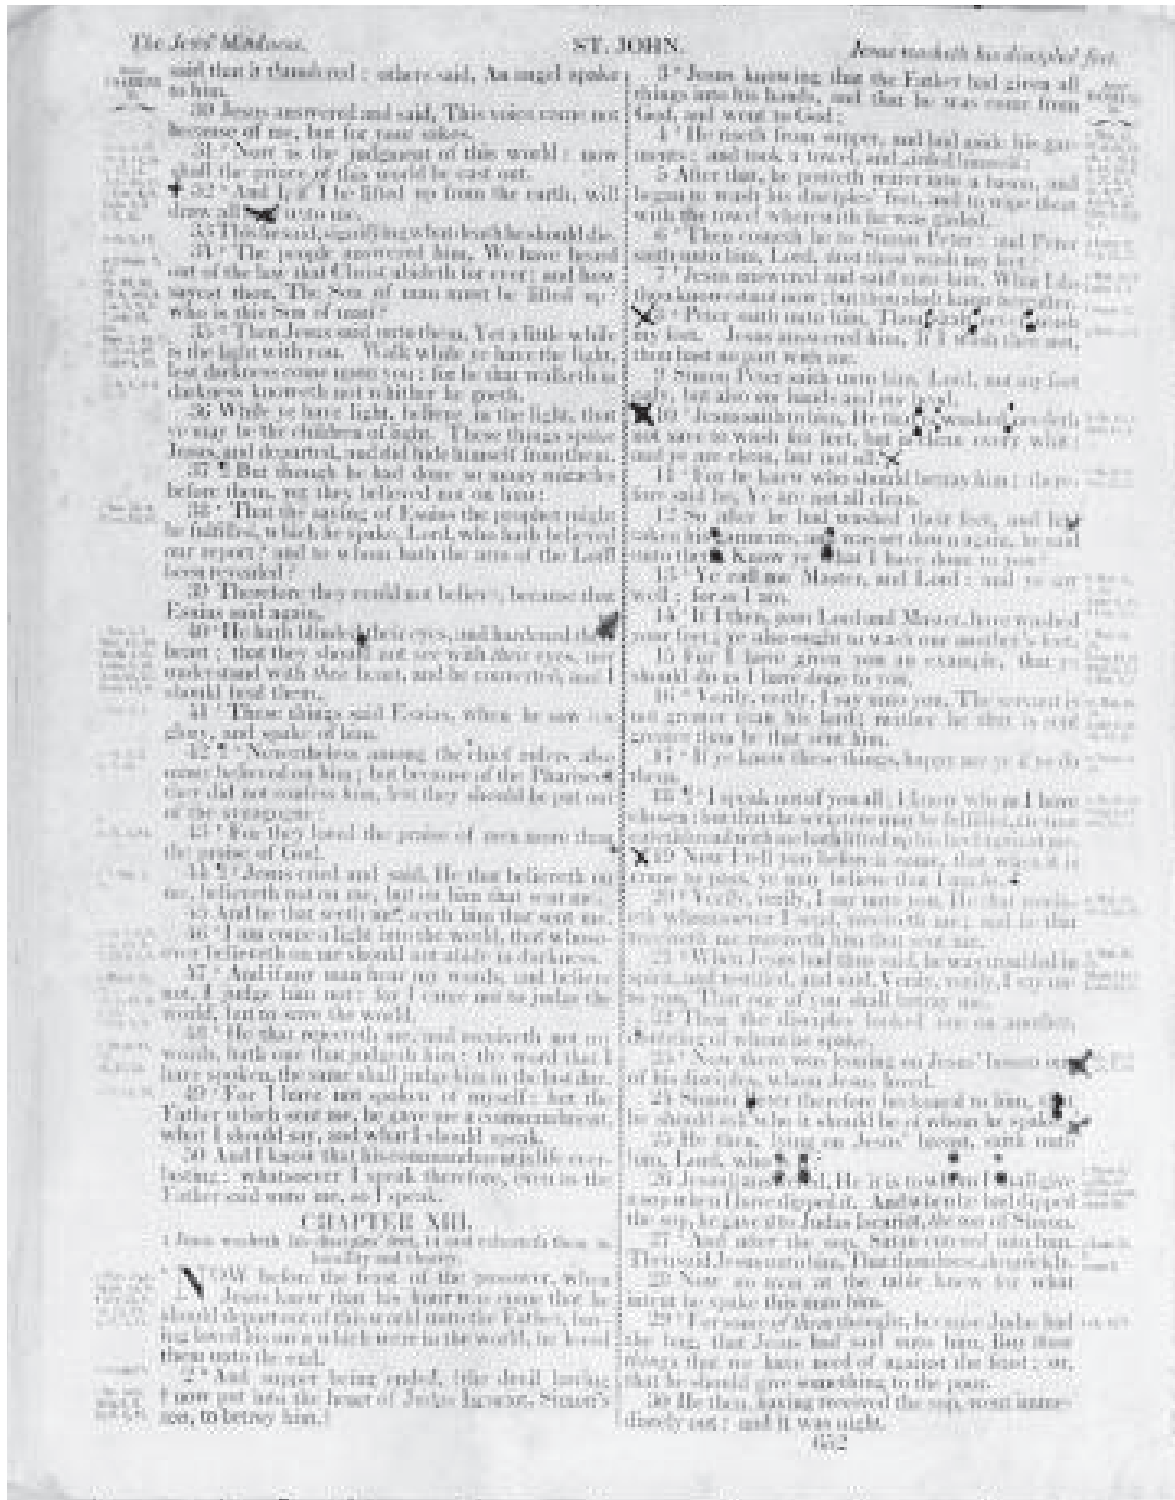 The Jews' blindness. ST. JOHN. Jesus washeth his disciples' feet.
said that it thundered: others said, An angel spake
to him.
30 Jesus answered and said, This voice came not
because of me, but for your sakes.
31 Now is the judgment of this world: now
shall the prince of this world be cast out.
32 And I, if I be lifted up from the earth, will
draw all unto me.
33 This he said, signifying what death he should die.
34 The people answered him, We have heard
out of the law that Christ abideth for ever: and how
sayest thou, The Son of man must be lifted up?
who is this Son of man?
35 Then Jesus said unto them, Yet a little while
is the light with you. Walk while ye have the light,
lest darkness come upon you: for he that walketh in
darkness knoweth not whither he goeth.
36 While ye have light, believe in the light, that
ye may be the children of light. These things spake
Jesus, and departed, and did hide himself from them.
37 ¶ But though he had done so many miracles
before them, yet they believed not on him:
38 That the saying of Esaias the prophet might
be fulfilled, which he spake, Lord, who hath believed
our report? and to whom hath the arm of the Lord
been revealed?
39 Therefore they could not believe, because that
Esaias said again,
40 He hath blinded their eyes, and hardened their
heart; that they should not see with their eyes, nor
understand with their heart, and be converted, and I
should heal them.
41 These things said Esaias, when he saw his
glory, and spake of him.
42 ¶ Nevertheless among the chief rulers also
many believed on him; but because of the Pharisees
they did not confess him, lest they should be put out
of the synagogue:
43 For they loved the praise of men more than
the praise of God.
44 ¶ Jesus cried and said, He that believeth on
me, believeth not on me, but on him that sent me.
45 And he that seeth me, seeth him that sent me.
46 I am come a light into the world, that whoso-
ever believeth on me should not abide in darkness.
47 And if any man hear my words, and believe
not, I judge him not: for I came not to judge the
world, but to save the world.
48 He that rejecteth me, and receiveth not my
words, hath one that judgeth him: the word that I
have spoken, the same shall judge him in the last day.
49 For I have not spoken of myself; but the
Father which sent me, he gave me a commandment,
what I should say, and what I should speak.
50 And I know that his commandment is life ever-
lasting: whatsoever I speak therefore, even as the
Father said unto me, so I speak.
CHAPTER XIII.
1 Jesus washeth his disciples' feet, 14 and exhorteth them to
humility and charity.
NOW before the feast of the passover, when
Jesus knew that his hour was come that he
should depart out of this world unto the Father, hav-
ing loved his own which were in the world, he loved
them unto the end.
2 And supper being ended, (the devil having
now put into the heart of Judas Iscariot, Simon's
son, to betray him,)
3 Jesus knowing that the Father had given all
things into his hands, and that he was come from
God, and went to God;
4 He riseth from supper, and laid aside his gar-
ments; and took a towel, and girded himself.
5 After that, he poureth water into a basin, and
began to wash his disciples' feet, and to wipe them
with the towel wherewith he was girded.
6 Then cometh he to Simon Peter: and Peter
saith unto him, Lord, dost thou wash my feet?
7 Jesus answered and said unto him, What I do
thou knowest not now; but thou shalt know hereafter.
8 Peter saith unto him, Thou shalt never wash
my feet. Jesus answered him, If I wash thee not,
thou hast no part with me.
9 Simon Peter saith unto him, Lord, not my feet
only, but also my hands and my head.
10 Jesus saith to him, He that is washed needeth
not save to wash his feet, but is clean every whit:
and ye are clean, but not all.
11 For he knew who should betray him; there-
fore said he, Ye are not all clean.
12 So after he had washed their feet, and had
taken his garments, and was set down again, he said
unto them, Know ye what I have done to you?
13 Ye call me Master, and Lord: and ye say
well; for so I am.
14 If I then, your Lord and Master, have washed
your feet; ye also ought to wash one another's feet.
15 For I have given you an example, that ye
should do as I have done to you.
16 Verily, verily, I say unto you, The servant is
not greater than his lord; neither he that is sent
greater than he that sent him.
17 If ye know these things, happy are ye if ye do
them.
18 ¶ I speak not of you all; I know whom I have
chosen: but that the scripture may be fulfilled, He that
eateth bread with me hath lifted up his heel against me.
19 Now I tell you before it come, that when it is
come to pass, ye may believe that I am he.
20 Verily, verily, I say unto you, He that receiv-
eth whomsoever I send, receiveth me; and he that
receiveth me receiveth him that sent me.
21 When Jesus had thus said, he was troubled in
spirit, and testified, and said, Verily, verily, I say un-
to you, That one of you shall betray me.
22 Then the disciples looked one on another,
doubting of whom he spake.
23 Now there was leaning on Jesus' bosom one
of his disciples, whom Jesus loved.
24 Simon Peter therefore beckoned to him, that
he should ask who it should be of whom he spake.
25 He then, lying on Jesus' breast, saith unto
him, Lord, who
26 Jesus answered, He it is to whom I shall give
a sop when I have dipped it. And when he had dipped
the sop, he gave it to Judas Iscariot, the son of Simon.
27 And after the sop, Satan entered into him.
Then said Jesus unto him, That thou doest, do quickly.
28 Now no man at the table knew for what
intent he spake this unto him.
29 For some of them thought, because Judas had
the bag, that Jesus had said unto him, Buy those
things that we have need of against the feast; or,
that he should give something to the poor.
30 He then, having received the sop, went imme-
diately out: and it was night.
652